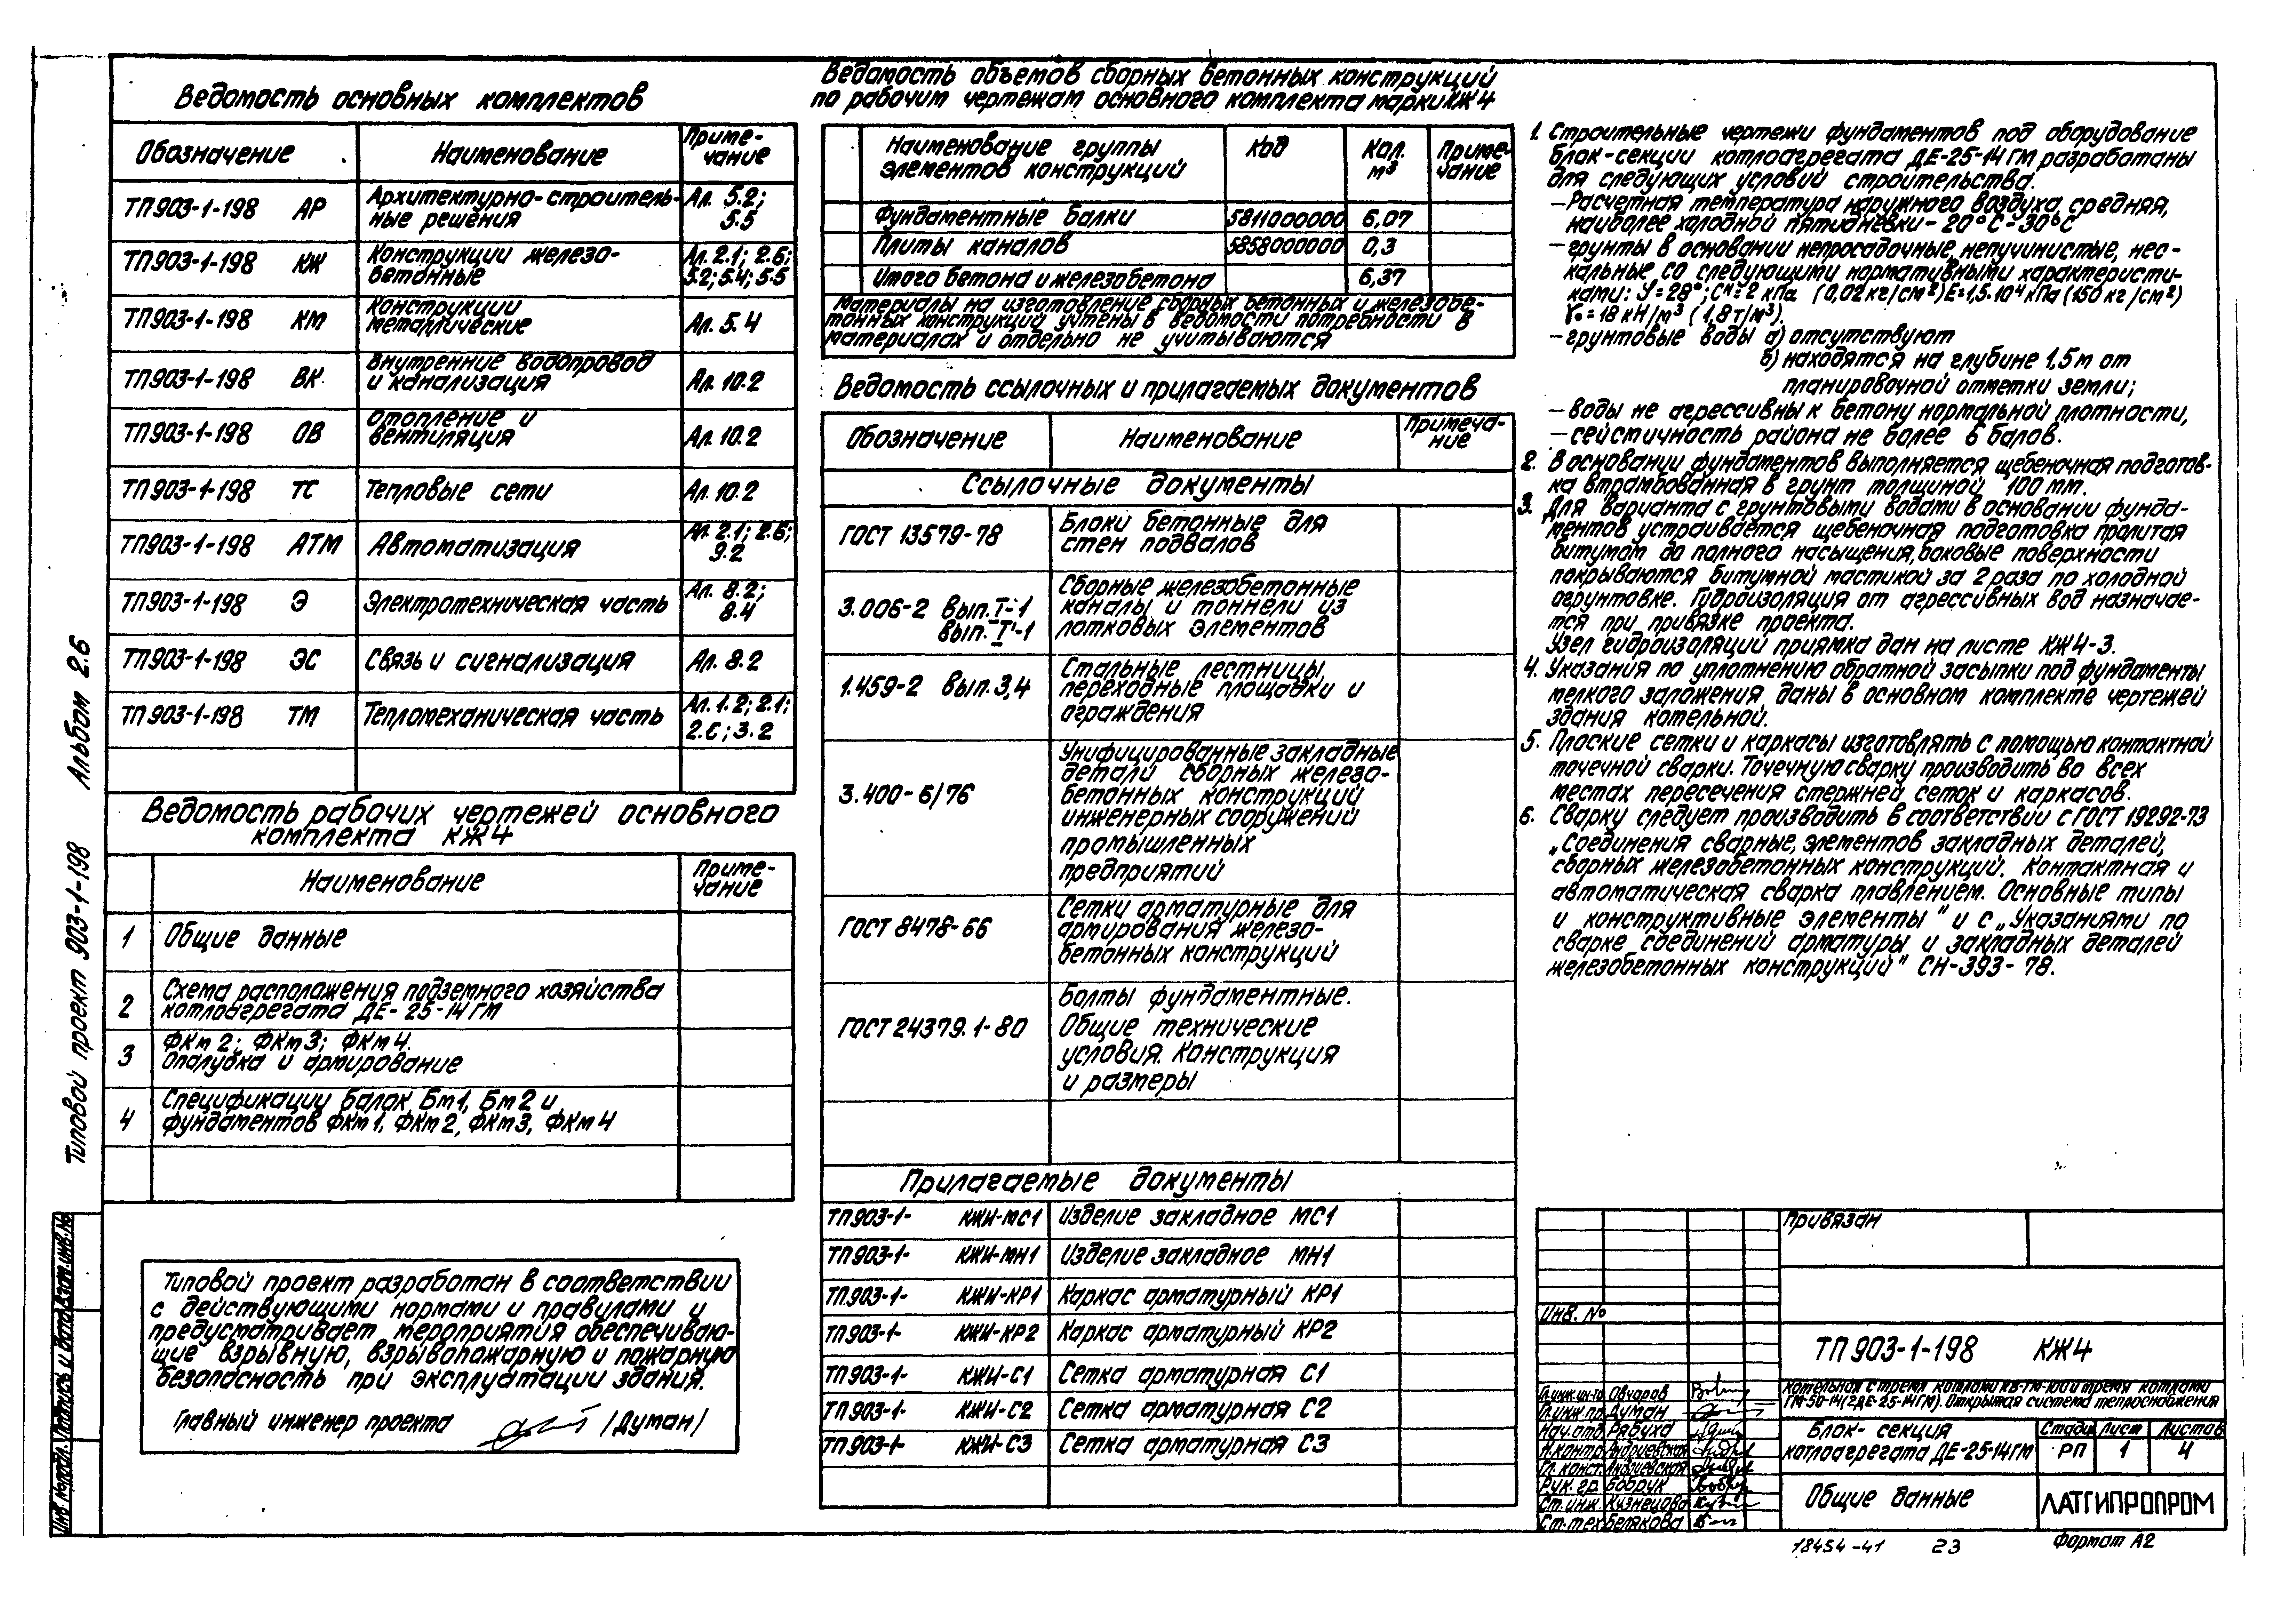 Ведомость основных комплектов
Обозначение
Наименование
Приме-
чание
ТП 903-1-198 АР
Архитектурно-строитель-
ные решения
Ал. 5.2;
5.5
ТП 903-1-198 КЖ
Конструкции железо-
бетонные
Ал. 2.1; 2.6;
5.2; 5.4; 5.5
ТП 903-1-198 КМ
Конструкции
металлические
Ал. 5.4
ТП 903-1-198 ВК
Внутренние водопровод
и канализация
Ал. 10.2
ТП 903-1-198 ОВ
Отопление и
вентиляция
Ал. 10.2
ТП 903-1-198 ТС
Тепловые сети
Ал. 10.2
ТП 903-1-198 АТМ
Автоматизация
Ал. 2.1; 2.6;
9.2
ТП 903-1-198 Э
Электротехническая часть
Ал. 8.2;
8.4
ТП 903-1-198 ЭС
Связь и сигнализация
Ал. 8.2
ТП 903-1-198 ТМ
Тепломеханическая часть
Ал. 1.2; 2.1;
2.6; 3.2
Ведомость рабочих чертежей основного
комплекта КЖ4
Наименование
Приме-
чание
1 Общие данные
2 Схема расположения подземного хозяйства
котлоагрегата ДЕ-25-14ГМ
3 ФКм2; ФКм3; ФКм4.
Опалубка и армирование
4 Спецификации балок Бм1, Бм2 и
фундаментов ФКм1, ФКм2, ФКм3, ФКм4
Типовой проект разработан в соответствии
с действующими нормами и правилами и
предусматривает мероприятия обеспечиваю-
щие взрывную, взрывопожарную и пожарную
безопасность при эксплуатации здания.
Главный инженер проекта /Думан/
Типовой проект 903-1-198 Альбом 2.6
Инв. № подл. Подпись и дата Взам. инв. №
Ведомость объемов сборных бетонных конструкций
по рабочим чертежам основного комплекта марки КЖ4
Наименование группы
элементов конструкций
Код
Кол.
м³
Приме-
чание
Фундаментные балки 5811000000 6,07
Плиты каналов 5858000000 0,3
Итого бетона и железобетона 6,37
Материалы на изготовление сборных бетонных и железобе-
тонных конструкций учтены в ведомости потребности в
материалах и отдельно не учитываются
Ведомость ссылочных и прилагаемых документов
Обозначение
Наименование
Примеча-
ние
Ссылочные документы
ГОСТ 13579-78
Блоки бетонные для
стен подвалов
3.006-2 вып. I-1
вып. II-1
Сборные железобетонные
каналы и тоннели из
лотковых элементов
1.459-2 вып. 3,4
Стальные лестницы,
переходные площадки и
ограждения
3.400-6/76
Унифицированные закладные
детали сборных железо-
бетонных конструкций
инженерных сооружений
промышленных
предприятий
ГОСТ 8478-66
Сетки арматурные для
армирования железо-
бетонных конструкций
ГОСТ 24379.1-80
Болты фундаментные.
Общие технические
условия. Конструкция
и размеры
Прилагаемые документы
ТП 903-1- КЖИ-МС1 Изделие закладное МС1
ТП 903-1- КЖИ-МН1 Изделие закладное МН1
ТП 903-1- КЖИ-КР1 Каркас арматурный КР1
ТП 903-1- КЖИ-КР2 Каркас арматурный КР2
ТП 903-1- КЖИ-С1 Сетка арматурная С1
ТП 903-1- КЖИ-С2 Сетка арматурная С2
ТП 903-1- КЖИ-С3 Сетка арматурная С3
1. Строительные чертежи фундаментов под оборудование
блок-секции котлоагрегата ДЕ-25-14ГМ разработаны
для следующих условий строительства.
– Расчетная температура наружного воздуха, средняя,
наиболее холодной пятидневки – 20°С – 30°С
– грунты в основании непросадочные, непучинистые, нес-
кальные со следующими нормативными характеристи-
ками: φ = 28°; Сᴴ = 2 кПа (0,02 кг/см²) Е = 1,5·10⁴ кПа (150 кг/см²)
γ₀ = 18 кН/м³ (1,8 т/м³).
– грунтовые воды а) отсутствуют
б) находятся на глубине 1,5 м от
планировочной отметки земли;
– воды не агрессивны к бетону нормальной плотности,
– сейсмичность района не более 6 балов.
2. В основании фундаментов выполняется щебеночная подготов-
ка втрамбованная в грунт толщиной 100 мм.
3. Для варианта с грунтовыми водами в основании фунда-
ментов устраивается щебеночная подготовка пролитая
битумом до полного насыщения, боковые поверхности
покрываются битумной мастикой за 2 раза по холодной
огрунтовке. Гидроизоляция от агрессивных вод назначае-
тся при привязке проекта.
Узел гидроизоляции приямка дан на листе КЖ4-3.
4. Указания по уплотнению обратной засыпки под фундаменты
мелкого заложения даны в основном комплекте чертежей
здания котельной.
5. Плоские сетки и каркасы изготовлять с помощью контактной
точечной сварки. Точечную сварку производить во всех
местах пересечения стержней сеток и каркасов.
6. Сварку следует производить в соответствии с ГОСТ 19292-73
„Соединения сварные, элементов закладных деталей,
сборных железобетонных конструкций. Контактная и
автоматическая сварка плавлением. Основные типы
и конструктивные элементы" и с „Указаниями по
сварке соединений арматуры и закладных деталей
железобетонных конструкций" СН-393-78.
Привязан
Инв. №
ТП 903-1-198 КЖ4
Котельная с тремя котлами КВ-ГМ-100 и тремя котлами
ГМ-50-14(2ДЕ-25-14ГМ). Открытая система теплоснабжения
Гл. инж. ин-та Овчаров
Гл. инж. пр. Думан
Нач. отд. Рябуха
Н. контр. Андриевская
Гл. конст. Андриевская
Рук. гр. Бобрук
Ст. инж. Кузнецова
Ст. тех. Белякова
Блок-секция
котлоагрегата ДЕ-25-14ГМ
Стадия Лист Листов
РП 1 4
Общие данные
ЛАТГИПРОПРОМ
18454-41 23
Формат А2